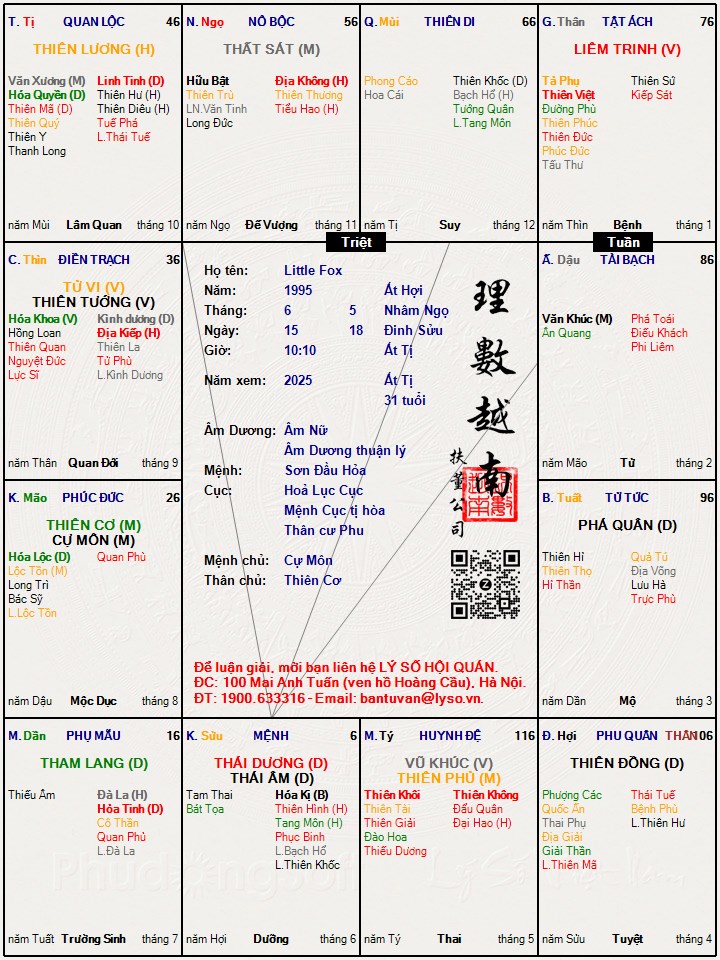 T. Tị QUAN LỘC 46
THIÊN LƯƠNG (H)
Văn Xương (M) Linh Tinh (D)
Hóa Quyền (D) Thiên Hư (H)
Thiên Mã (D) Thiên Diêu (H)
Thiên Quý Tuế Phá
Thiên Y L.Thái Tuế
Thanh Long
năm Mùi Lâm Quan tháng 10
N. Ngọ NÔ BỘC 56
THẤT SÁT (M)
Hữu Bật Địa Không (H)
Thiên Trù Thiên Thương
LN.Văn Tinh Tiểu Hao (H)
Long Đức
năm Ngọ Đế Vượng tháng 11
Q. Mùi THIÊN DI 66
Phong Cáo Thiên Khốc (D)
Hoa Cái Bạch Hổ (H)
Tướng Quân
L.Tang Môn
năm Tị Suy tháng 12
G. Thân TẬT ÁCH 76
LIÊM TRINH (V)
Tả Phụ Thiên Sứ
Thiên Việt Kiếp Sát
Đường Phù
Thiên Phúc
Thiên Đức
Phúc Đức
Tấu Thư
năm Thìn Bệnh tháng 1
Triệt
Tuần
C. Thìn ĐIỀN TRẠCH 36
TỬ VI (V)
THIÊN TƯỚNG (V)
Hóa Khoa (V) Kình dương (D)
Hồng Loan Địa Kiếp (H)
Thiên Quan Thiên La
Nguyệt Đức Tử Phù
Lực Sĩ L.Kình Dương
năm Thân Quan Đới tháng 9
Họ tên: Little Fox
Năm: 1995 Ất Hợi
Tháng: 6 5 Nhâm Ngọ
Ngày: 15 18 Đinh Sửu
Giờ: 10:10 Ất Tị
Năm xem: 2025 Ất Tị
31 tuổi
Âm Dương: Âm Nữ
Âm Dương thuận lý
Mệnh: Sơn Đầu Hỏa
Cục: Hoả Lục Cục
Mệnh Cục tị hòa
Thân cư Phu
Mệnh chủ: Cự Môn
Thân chủ: Thiên Cơ
理數越南
扶董公司
Để luận giải, mời bạn liên hệ LÝ SỐ HỘI QUÁN.
ĐC: 100 Mai Anh Tuấn (ven hồ Hoàng Cầu), Hà Nội.
ĐT: 1900.633316 - Email: bantuvan@lyso.vn.
Ấ. Dậu TÀI BẠCH 86
Văn Khúc (M) Phá Toái
Ân Quang Điếu Khách
Phi Liêm
năm Mão Tử tháng 2
K. Mão PHÚC ĐỨC 26
THIÊN CƠ (M)
CỰ MÔN (M)
Hóa Lộc (D) Quan Phù
Lộc Tồn (M)
Long Trì
Bác Sỹ
L.Lộc Tồn
năm Dậu Mộc Dục tháng 8
B. Tuất TỬ TỨC 96
PHÁ QUÂN (D)
Thiên Hỉ Quả Tú
Thiên Thọ Địa Võng
Hỉ Thần Lưu Hà
Trực Phù
năm Dần Mộ tháng 3
M. Dần PHỤ MẪU 16
THAM LANG (D)
Thiếu Âm Đà La (H)
Hỏa Tinh (D)
Cô Thần
Quan Phủ
L.Đà La
năm Tuất Trường Sinh tháng 7
K. Sửu MỆNH 6
THÁI DƯƠNG (D)
THÁI ÂM (D)
Tam Thai Hóa Kị (B)
Bát Tọa Thiên Hình (H)
Tang Môn (H)
Phục Binh
L.Bạch Hổ
L.Thiên Khốc
năm Hợi Dưỡng tháng 6
M. Tý HUYNH ĐỆ 116
VŨ KHÚC (V)
THIÊN PHỦ (M)
Thiên Khôi Thiên Không
Thiên Tài Đẩu Quân
Thiên Giải Đại Hao (H)
Đào Hoa
Thiếu Dương
năm Tý Thai tháng 5
Đ. Hợi PHU QUÂN THÂN 106
THIÊN ĐỒNG (D)
Phượng Các Thái Tuế
Quốc Ấn Bệnh Phù
Thai Phụ L.Thiên Hư
Địa Giải
Giải Thần
L.Thiên Mã
năm Sửu Tuyệt tháng 4